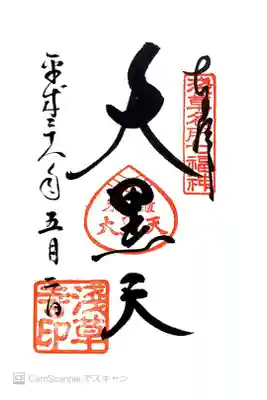 奉拝
浅草名所七福神
大黒天
平成三十年五月二日
浅草寺印
CamScanner でスキャン